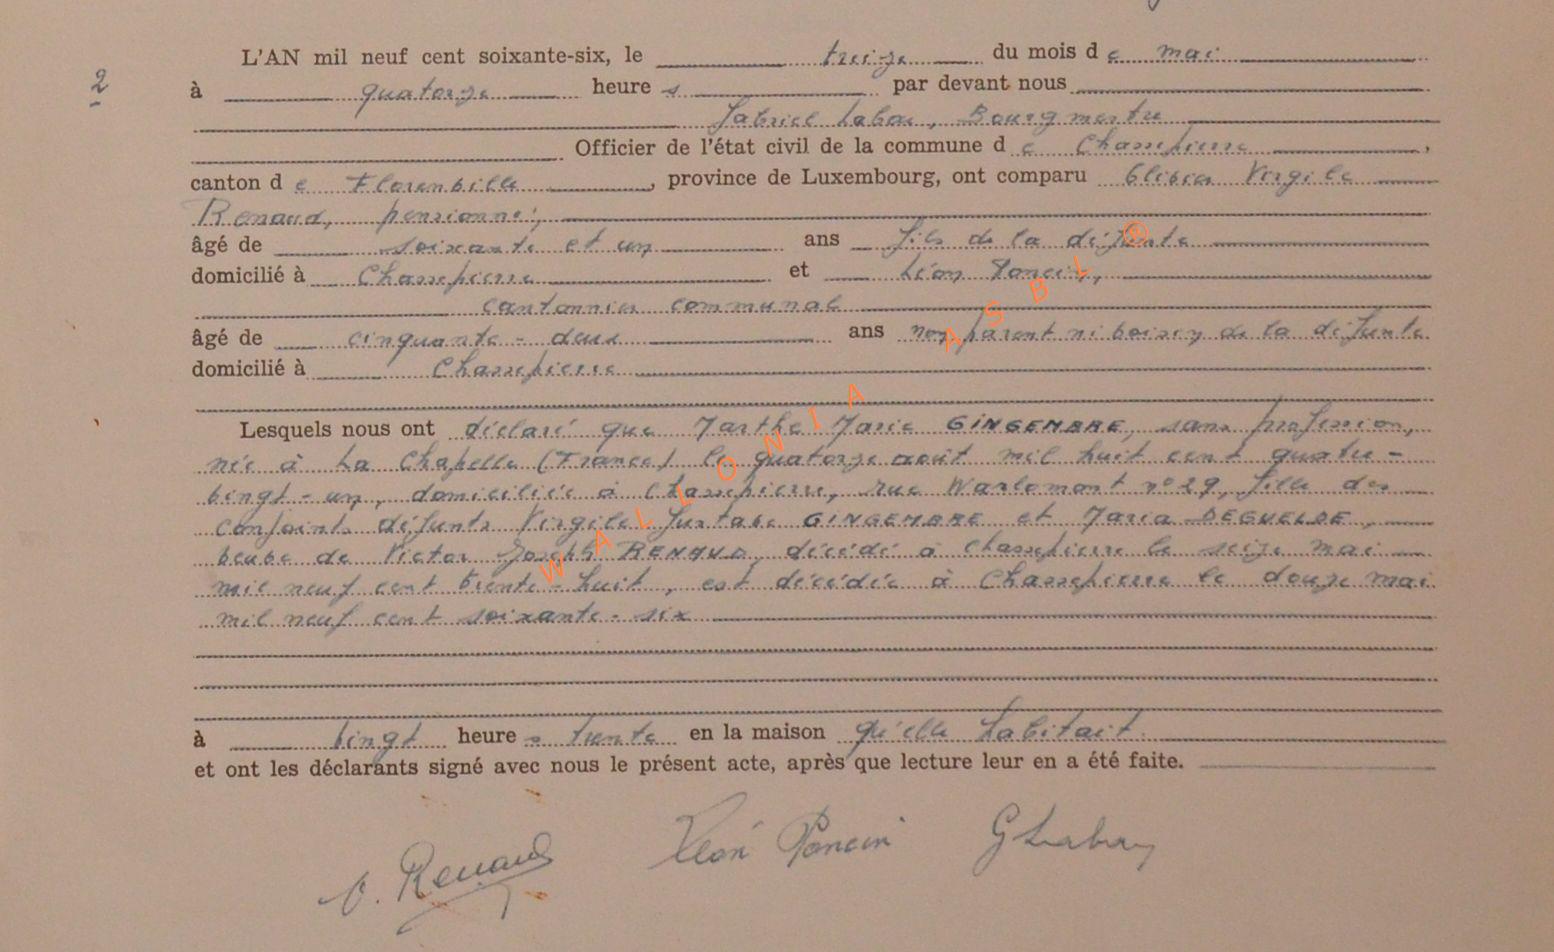 L'AN mil neuf cent soixante-six, le treize du mois de mai
2
à quatorze heures par devant nous
Gabriel Bourgmestre
Officier de l'état civil de la commune de Chassepierre,
canton de Florenville, province de Luxembourg, ont comparu Olivier Virgile
Renaud, pensionné,
âgé de soixante et un ans fils de la défunte
domicilié à Chassepierre et Léon Poncin,
cantonnier communal
âgé de cinquante-deux ans non parent ni voisin de la défunte
domicilié à Chassepierre
Lesquels nous ont déclaré que Marthe Marie GINGEMBRE, sans profession,
née à La Chapelle (France) le quatorze août mil huit cent quatre-
vingt-un, domiciliée à Chassepierre, rue Warlomont n° 29, fille des
conjoints défunts Virgile Gustave GINGEMBRE et Maria DEGUELDE,
veuve de Victor Joseph RENAUD, décédé à Chassepierre le seize mai
mil neuf cent trente-huit, est décédée à Chassepierre le douze mai
mil neuf cent soixante-six
à vingt heures trente en la maison qu'elle habitait.
et ont les déclarants signé avec nous le présent acte, après que lecture leur en a été faite.
O. Renaud Léon Poncin
WALLONIA ASBL ®